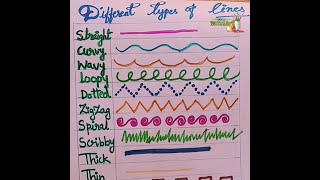 Different Types of lines
Straight
Curvy
Wavy
Loopy
Dotted
ZigZag
Spiral
Scribby
Thick
Thin